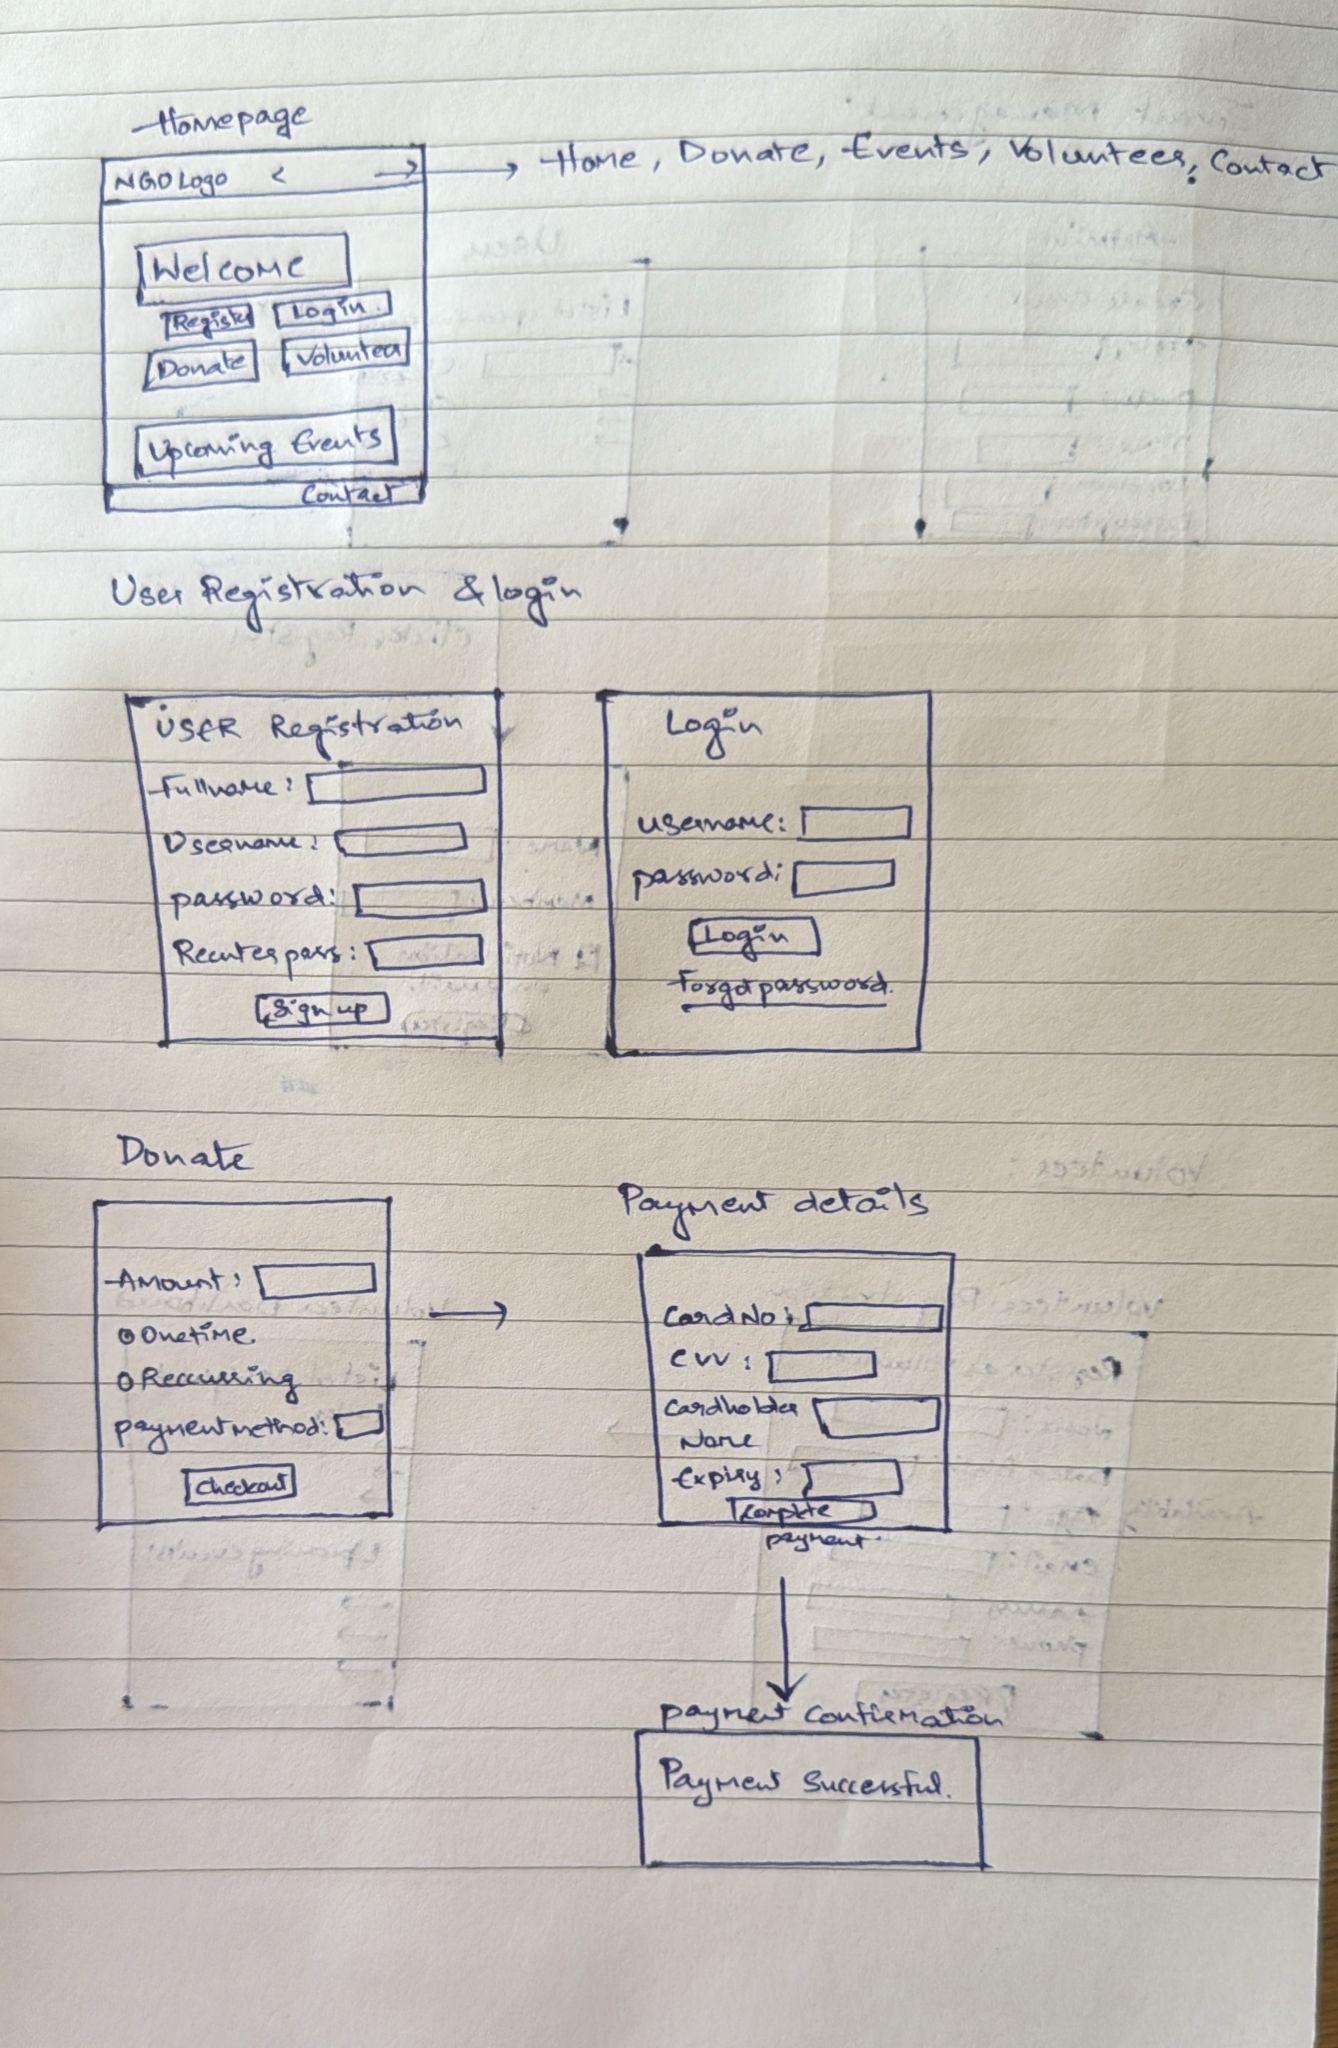 Homepage
NGO Logo < → → Home, Donate, Events, Volunteer, Contact
Welcome
Register Login.
Donate Volunteer
Upcoming Events
Contact
User Registration & login
USER Registration
Fullname:
Username:
password:
Reenter pass:
Sign up
Login
username:
password:
Login
Forgot password.
Donate
Amount:
Onetime.
Reccurring
payment method:
Checkout
Payment details
Card No:
CVV:
Cardholder
Name
Expiry:
Complete
payment.
payment Confirmation
Payment Successful.